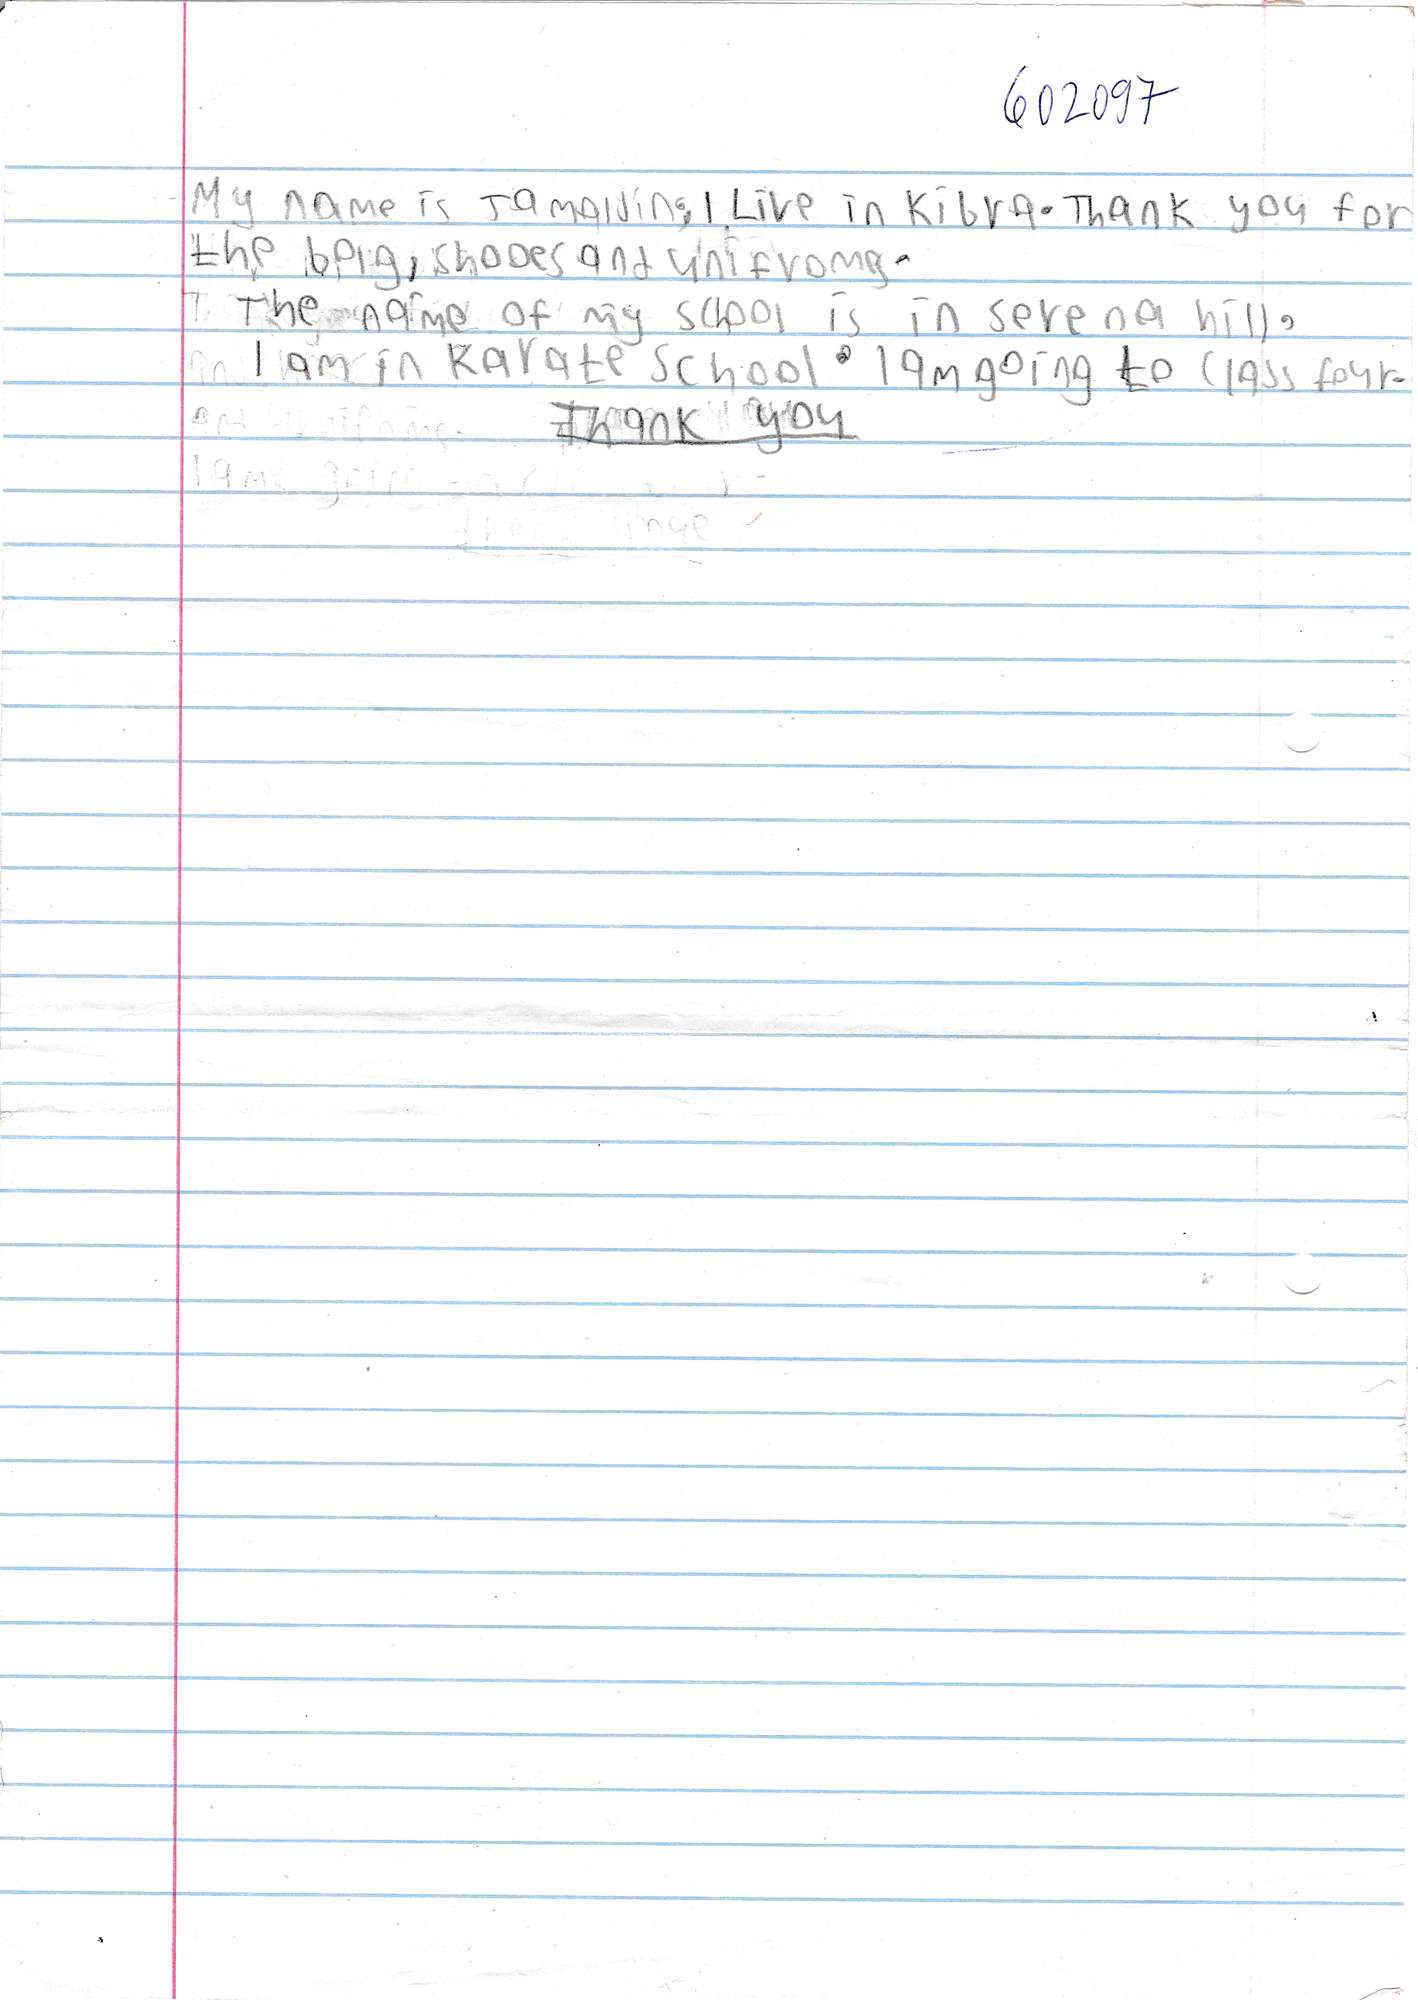 602097
My name is Jamalding, I Live in Kibra. Thank you for
the beig, shooes and unifromg.
The name of my school is in serena hill,
I am in Karate School. I am going to class four.
Thank you